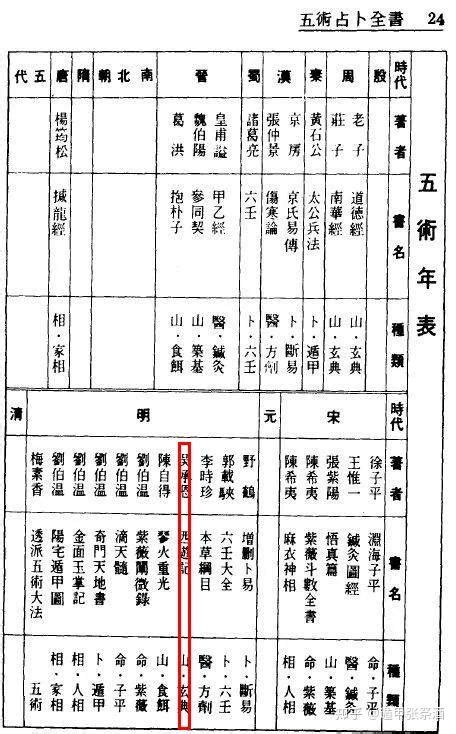 五術占卜全書 24
五術年表
時代 著者 書名 種類
殷
周
老子 道德經 山·玄典
莊子 南華經 山·玄典
秦
黃石公 太公兵法 卜·遁甲
漢
京房 京氏易傳 卜·斷易
張仲景 傷寒論 醫·方劑
蜀
諸葛亮 六壬 卜·六壬
晉
皇甫謐 甲乙經 醫·鍼灸
魏伯陽 參同契 山·築基
葛洪 抱朴子 山·食餌
南北朝
隋
唐
楊筠松 撼龍經 相·家相
五代
時代 著者 書名 種類
宋
徐子平 淵海子平 命·子平
王惟一 鍼灸圖經 醫·鍼灸
張紫陽 悟真篇 山·築基
陳希夷 紫薇斗數全書 命·紫薇
陳希夷 麻衣神相 相·人相
元
明
野鶴 增刪卜易 卜·斷易
郭載騋 六壬大全 卜·六壬
李時珍 本草綱目 醫·方劑
吳承恩 西遊記 山·玄典
陳自得 琴火重光 山·食餌
劉伯溫 紫薇闡微錄 命·紫薇
劉伯溫 滴天髓 命·子平
劉伯溫 奇門天地書 卜·遁甲
劉伯溫 金面玉掌記 相·人相
劉伯溫 陽宅遁甲圖 相·家相
清
梅素香 透派五術大法 五術
知乎 @遁甲張祭酒